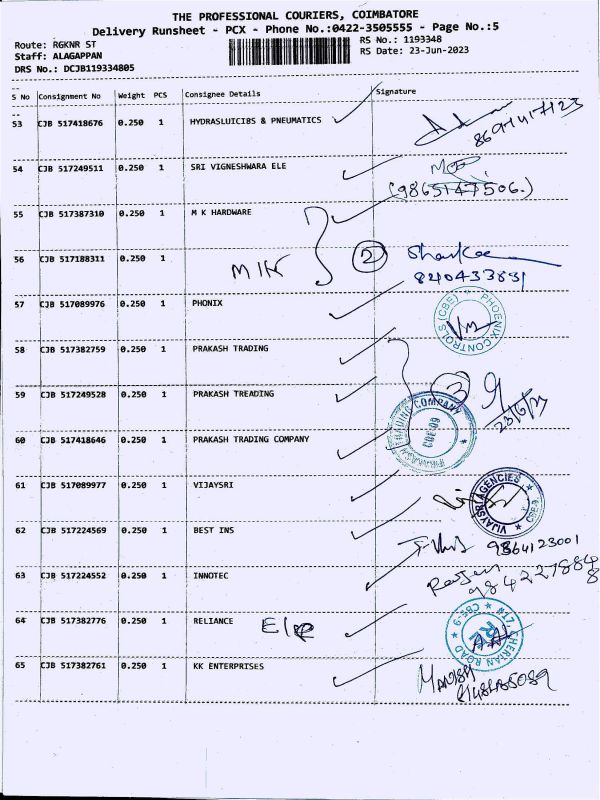 THE PROFESSIONAL COURIERS, COIMBATORE
Delivery Runsheet - PCX - Phone No.:0422-3505555 - Page No.:5
Route: RGKNR ST
RS No.: 1193348
Staff: ALAGAPPAN
RS Date: 23-Jun-2023
DRS No.: DCJB119334805
S No Consignment No Weight PCS Consignee Details Signature
53 CJB 517418676 0.250 1 HYDRASLUICIBS & PNEUMATICS
54 CJB 517249511 0.250 1 SRI VIGNESHWARA ELE
(9865147506.)
55 CJB 517387310 0.250 1 M K HARDWARE
56 CJB 517188311 0.250 1
2
840433831
57 CJB 517089976 0.250 1 PHONIX
PHOENIX CONTROLS (CBE)
58 CJB 517382759 0.250 1 PRAKASH TRADING
59 CJB 517249528 0.250 1 PRAKASH TREADING
3
23/6/23
60 CJB 517418646 0.250 1 PRAKASH TRADING COMPANY
TRADING COMPANY
CBE-09
61 CJB 517089977 0.250 1 VIJAYSRI
VIJAYSRI AGENCIES
62 CJB 517224569 0.250 1 BEST INS
9864123001
63 CJB 517224552 0.250 1 INNOTEC
64 CJB 517382776 0.250 1 RELIANCE Ele
#17, CHERIAN ROAD CBE-9
65 CJB 517382761 0.250 1 KK ENTERPRISES